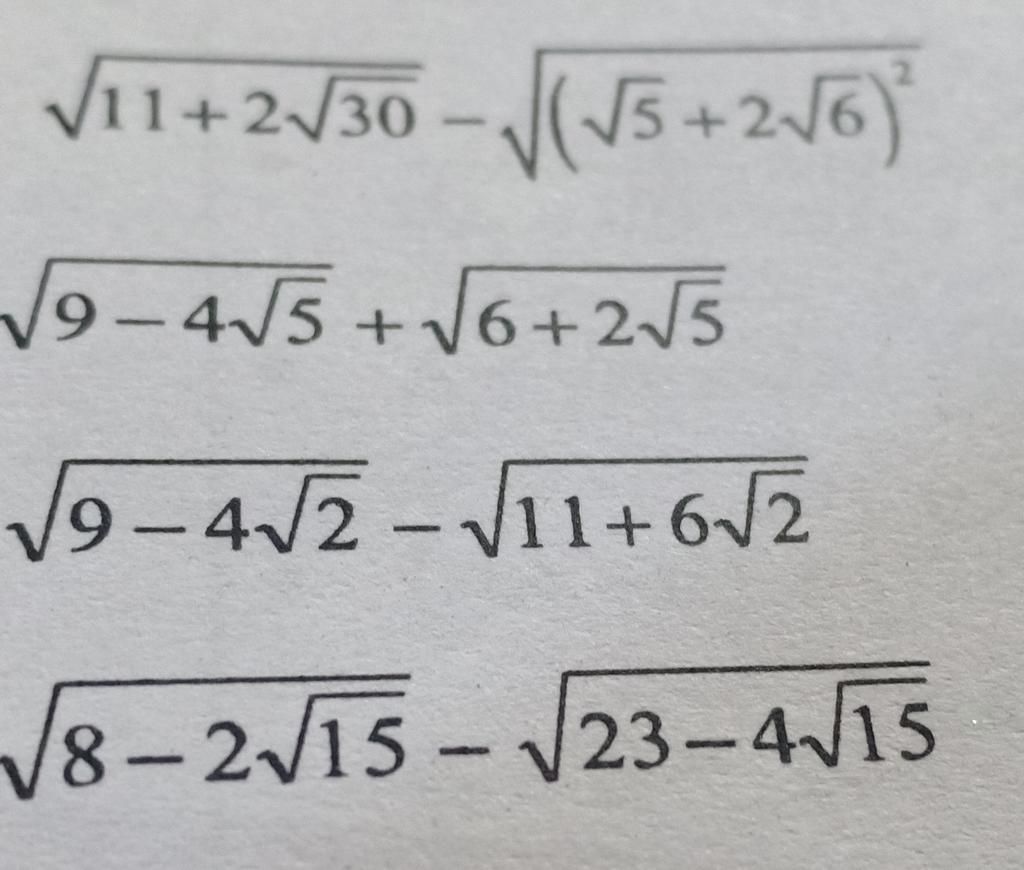 √(11 + 2√30) − √((√5 + 2√6)²)
√(9 − 4√5) + √(6 + 2√5)
√(9 − 4√2) − √(11 + 6√2)
√(8 − 2√15) − √(23 − 4√15)